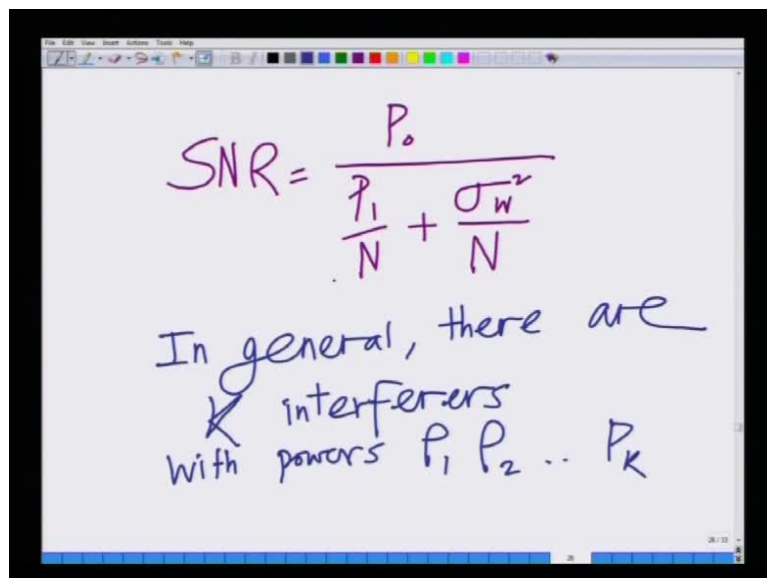 File Edit View Insert Actions Tools Help
SNR = P₀ / (P₁/N + σ_w²/N)
In general, there are
K interferers
with powers P₁ P₂ .. P_K
28/33
28